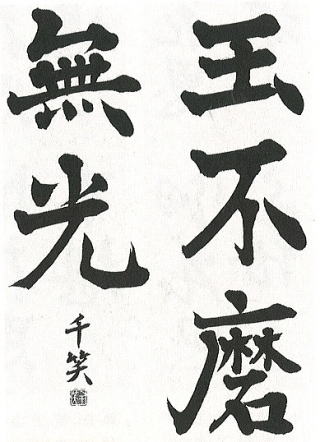 玉不磨
無光
千笑